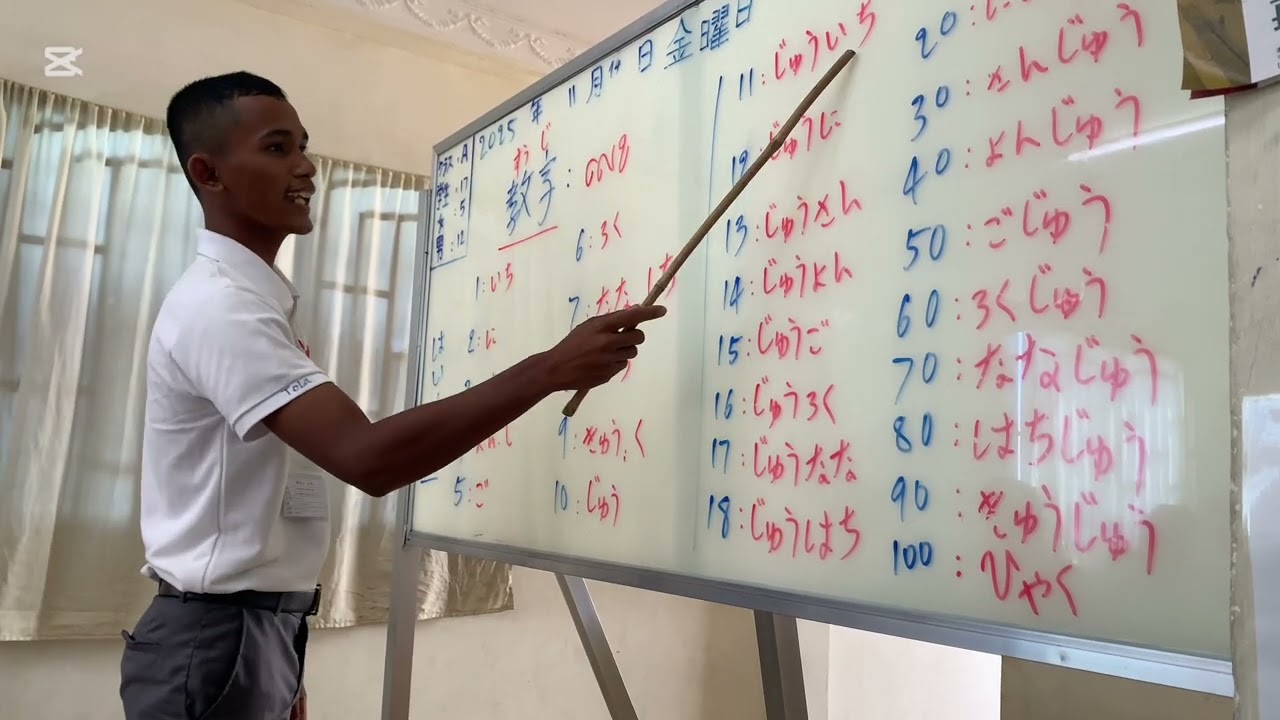 2025 年 11 月 14 日 金曜日
クラス : A
学生 : 17
女 : 5
男 : 12
すうじ
数字 :
は
い
1 : いち
2 : に
5 : ご
6 : ろく
7 : なな しち
9 : きゅう.く
10 : じゅう
11 : じゅういち
12 : じゅうに
13 : じゅうさん
14 : じゅうよん
15 : じゅうご
16 : じゅうろく
17 : じゅうなな
18 : じゅうはち
20 :
30 : さんじゅう
40 : よんじゅう
50 : ごじゅう
60 : ろくじゅう
70 : ななじゅう
80 : はちじゅう
90 : きゅうじゅう
100 : ひゃく
Tola